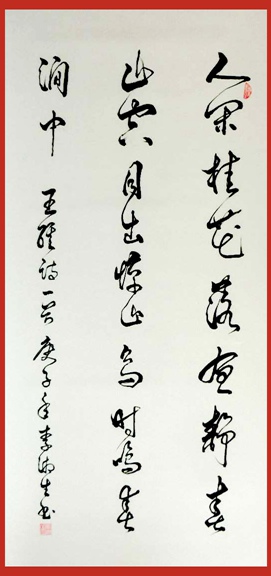 人闲桂花落夜静春
山空月出惊山鸟时鸣春
涧中 王维诗一首 庚子年李 生书